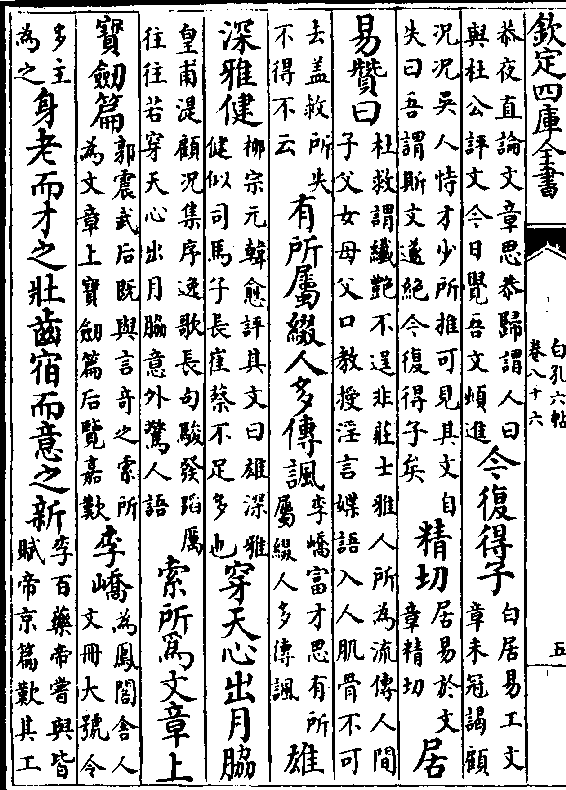 欽定四庫全書
白孔六帖
卷八十六
五
恭夜直論文章思恭歸謂人曰
與杜公評文今日覺吾文頓進
今復得子
白居易工文
章未冠謁顧
況況吳人恃才少所推可見其文自
失曰吾謂斯文遂絶今復得子矣
精切
居易於文
章精切
居
易贊曰
杜牧謂纖艶不逞非莊士雅人所為流傳人間
子父女母父口教授淫言媟語入人肌骨不可
去盖救所失
不得不云
有所屬綴人多傳諷
李嶠富才思有所
屬綴人多傳諷
雄
深雅健
柳宗元韓愈評其文曰雄深雅
健似司馬子長崔蔡不足多也
穿天心出月脇
皇甫湜顧況集序逸歌長句駿發蹈厲
往往若穿天心出月脇意外驚人語
索所為文章上
寶劒篇
郭震武后既與言奇之索所
為文章上寶劒篇后覽嘉歎
李嶠
為鳳閣舍人
文冊大號令
多主
為之
身老而才之壯齒宿而意之新
李百藥帝嘗與皆
賦帝京篇歎其工